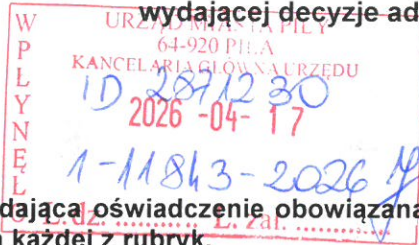 wydającej decyzje ad
WPŁYNĘŁ
URZĄD MIASTA PIŁY
64-920 PIŁA
KANCELARIA GŁÓWNA URZĘDU
ID 2871230
2026 -04- 17
1-11843-2026
L. dz. ........... L. zał. ...........
dająca oświadczenie obowiązana
każdej z rubryk.